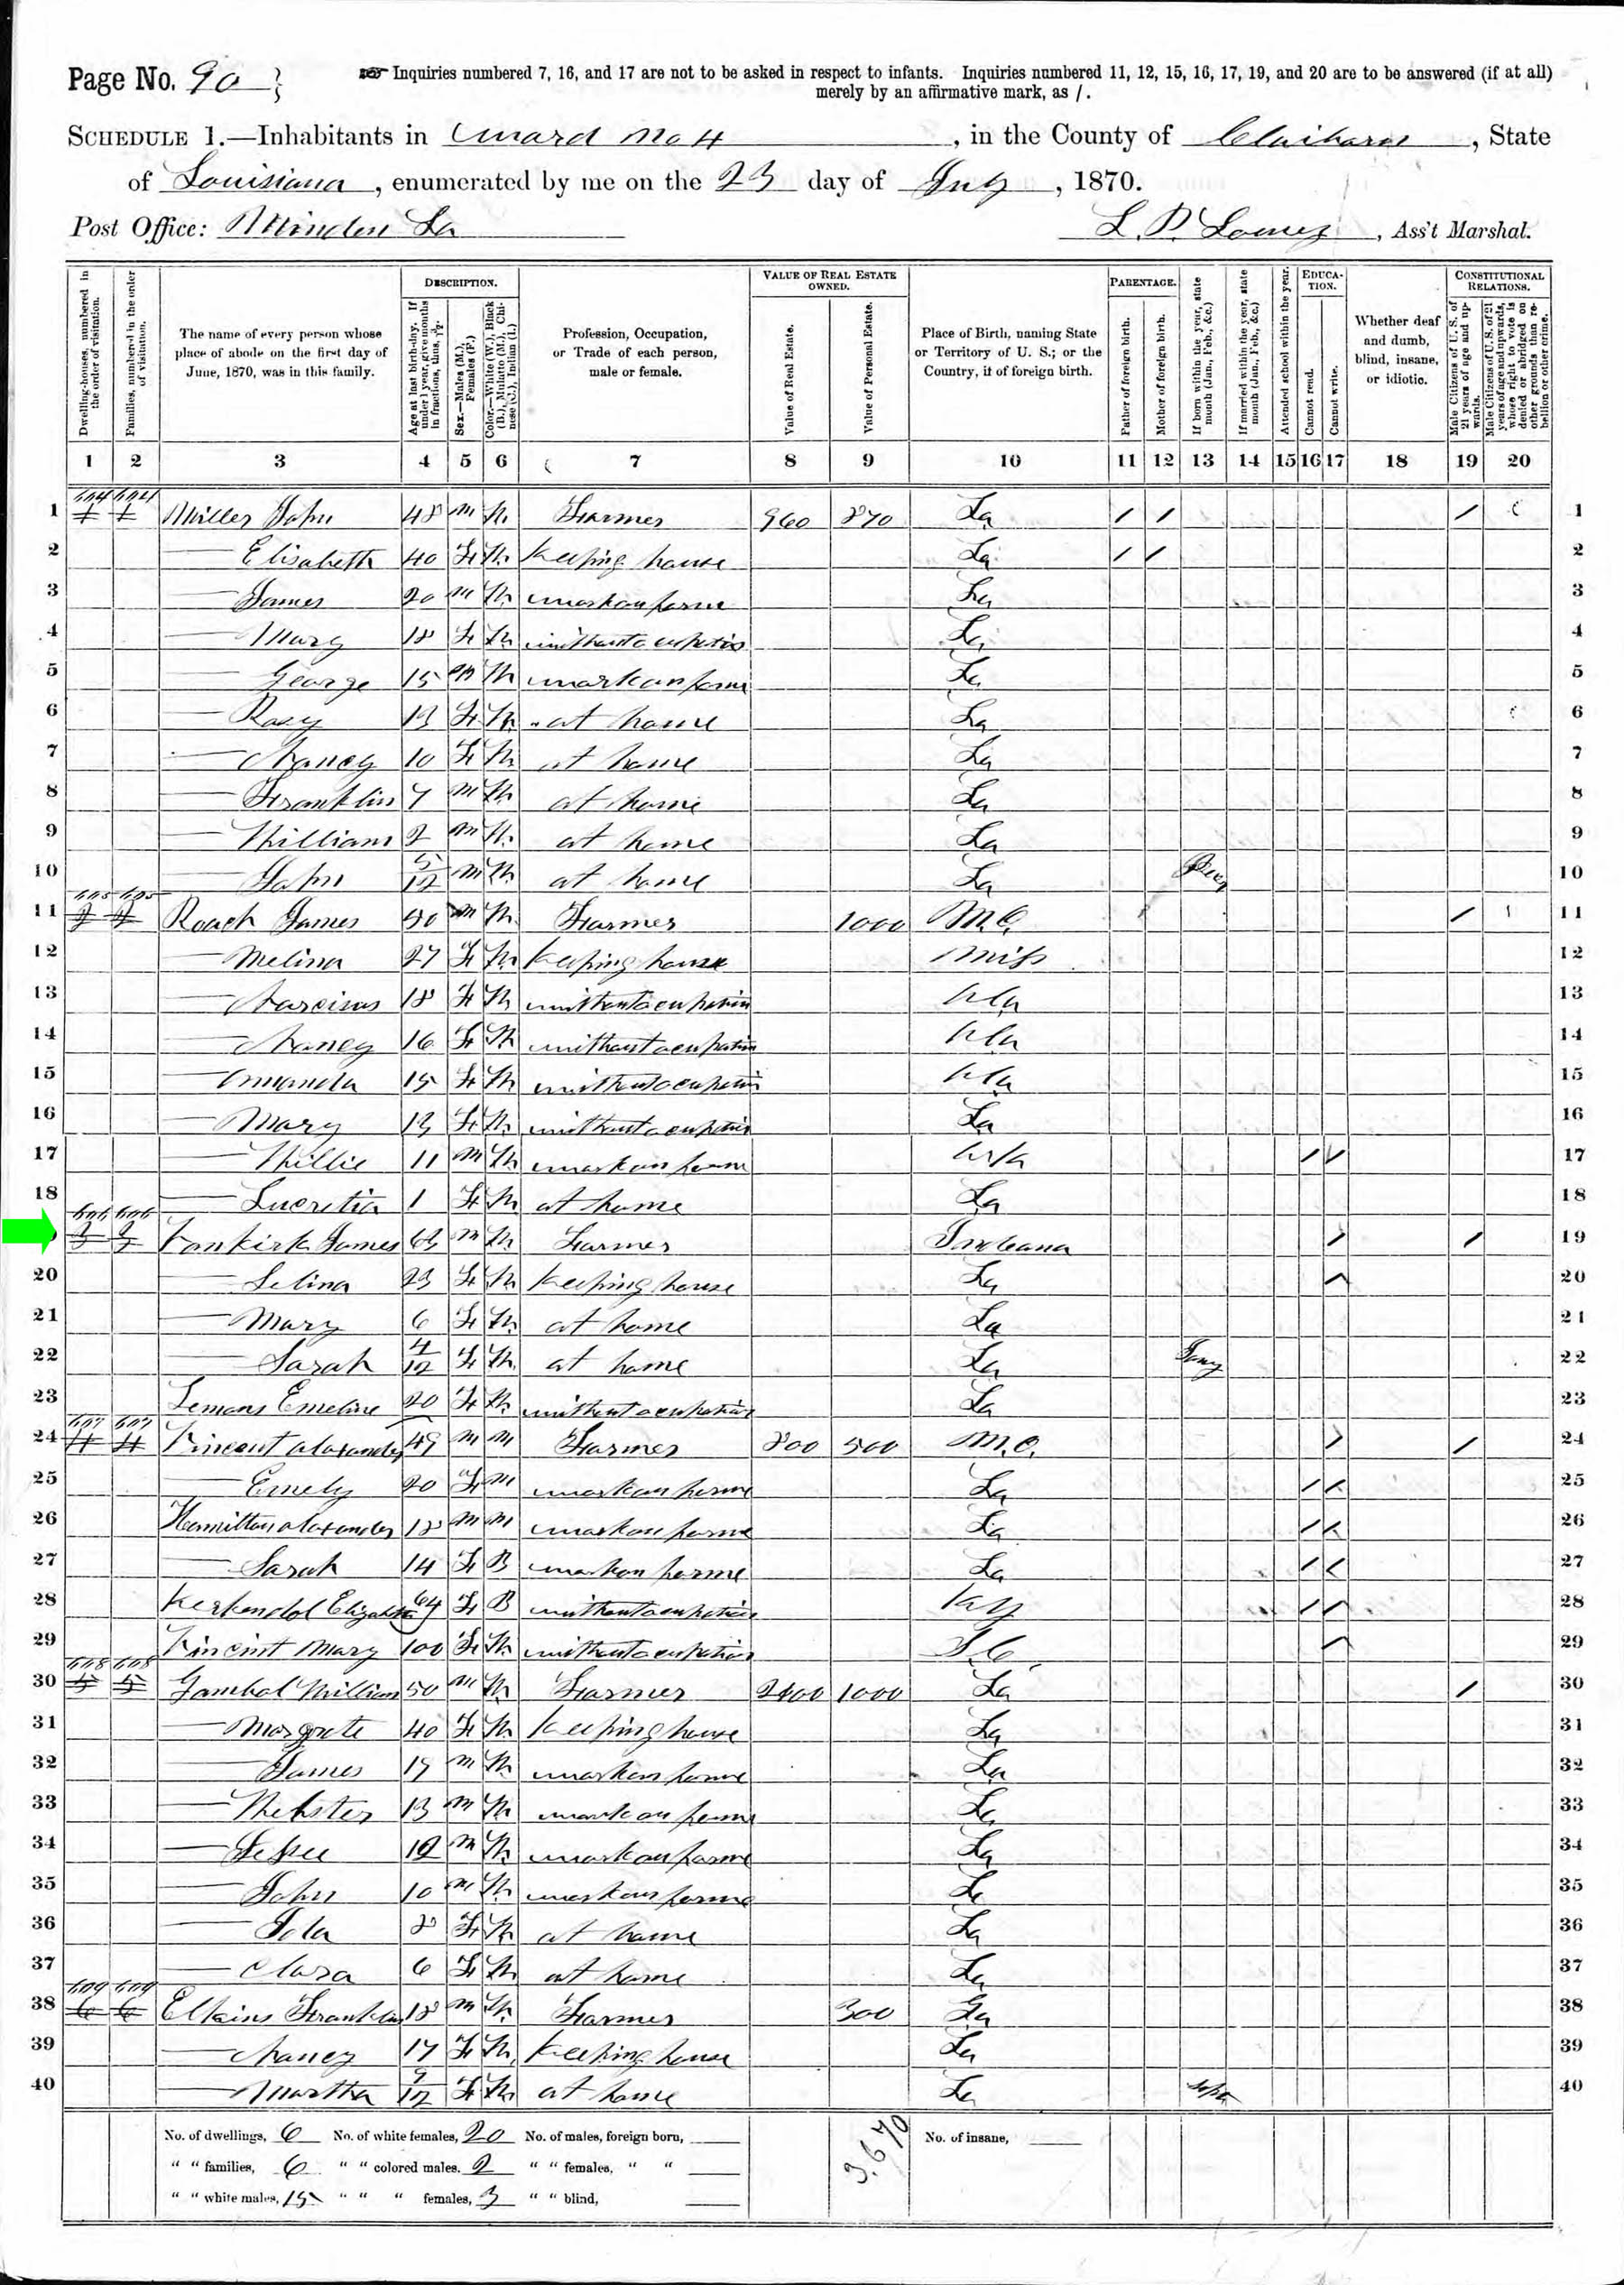 Page No. 90
Inquiries numbered 7, 16, and 17 are not to be asked in respect to infants. Inquiries numbered 11, 12, 15, 16, 17, 19, and 20 are to be answered (if at all)
merely by an affirmative mark, as /.
SCHEDULE 1.—Inhabitants in Ward No 4, in the County of Claiborne, State
of Louisiana, enumerated by me on the 23 day of July, 1870.
Post Office: Minden La
L. P., Ass't Marshal.
Dwelling-houses, numbered in the order of visitation.
Families, numbered in the order of visitation.
The name of every person whose place of abode on the first day of June, 1870, was in this family.
DESCRIPTION.
Age at last birth-day. If under 1 year, give months in fractions, thus, 3/12.
Sex.—Males (M.), Females (F.)
Color.—White (W.), Black (B.), Mulatto (M.), Chinese (C.), Indian (I.)
Profession, Occupation, or Trade of each person, male or female.
VALUE OF REAL ESTATE OWNED.
Value of Real Estate.
Value of Personal Estate.
Place of Birth, naming State or Territory of U. S.; or the Country, if of foreign birth.
PARENTAGE.
Father of foreign birth.
Mother of foreign birth.
If born within the year, state month (Jan., Feb., &c.)
If married within the year, state month (Jan., Feb., &c.)
EDUCATION.
Attended school within the year.
Cannot read.
Cannot write.
Whether deaf and dumb, blind, insane, or idiotic.
CONSTITUTIONAL RELATIONS.
Male Citizens of U. S. of 21 years of age and upwards.
Male Citizens of U. S. of 21 years of age and upwards, whose right to vote is denied or abridged on other grounds than rebellion or other crime.
1 2 3 4 5 6 7 8 9 10 11 12 13 14 15 16 17 18 19 20
1 604 604 Miller John 48 M W Farmer 960 870 La / / / 1
2 — Elisabeth 40 F W Keeping house La / / 2
3 — James 20 M W work on farme La 3
4 — Mary 18 F W without ocupation La 4
5 — George 15 M W work on farme La 5
6 — Rosy 13 F W at home La 6
7 — Nancy 10 F W at home La 7
8 — Franklin 7 M W at home La 8
9 — William 2 M W at home La 9
10 — John 5/12 M W at home La 10
11 605 605 Roach James 50 M W Farmer 1000 N.C. / 11
12 — Melina 27 F W Keeping house Miss 12
13 — 18 F W without ocupation Ala 13
14 — Nancy 16 F W without ocupation Ala 14
15 — Amanda 15 F W without ocupation Ala 15
16 — Mary 13 F W without ocupation La 16
17 — Willie 11 M W work on farm Ark / / 17
18 — Lucretia 1 F W at home La 18
606 606 Vankirk James 63 M W Farmer Indeana / / 19
20 — Selina 23 F W Keeping house La / 20
21 — Mary 6 F W at home La 21
22 — Sarah 4/12 F W at home La Jany 22
23 Lemons Emeline 20 F W without ocupation La 23
24 607 607 Vincent Alaxander 49 M M Farmer 800 500 N.C. / / 24
25 — Emely 20 F M work on farme La / / 25
26 Hamilton Alaxander 18 M M work on farme La / / 26
27 — Sarah 14 F B work on farme La / / 27
28 Kerkendol Elizabeth 64 F B without ocupation Ky / / 28
29 Vincint Mary 100 F W without ocupation S.C. / 29
30 608 608 Gambol William 50 M W Farmer 2400 1000 La / 30
31 — Margrete 40 F W Keeping house La 31
32 — James 17 M W work on farme La 32
33 — Webster 13 M W work on farme La 33
34 — Jessee 12 M W work on farme La 34
35 — John 10 M W work on farme La 35
36 — Iola 8 F W at home La 36
37 — Clara 6 F W at home La 37
38 609 609 Elkins Franklin 18 M W Farmer 300 Ga 38
39 — Nancy 17 F W Keeping house La 39
40 — Martha 9/12 F W at home La Sept 40
No. of dwellings, 6 No. of white females, 20 No. of males, foreign born, No. of insane,
" " families, 6 " " colored males, 2 " " females, " "
" " white males, 15 " " " females, 3 " " blind,
3,670